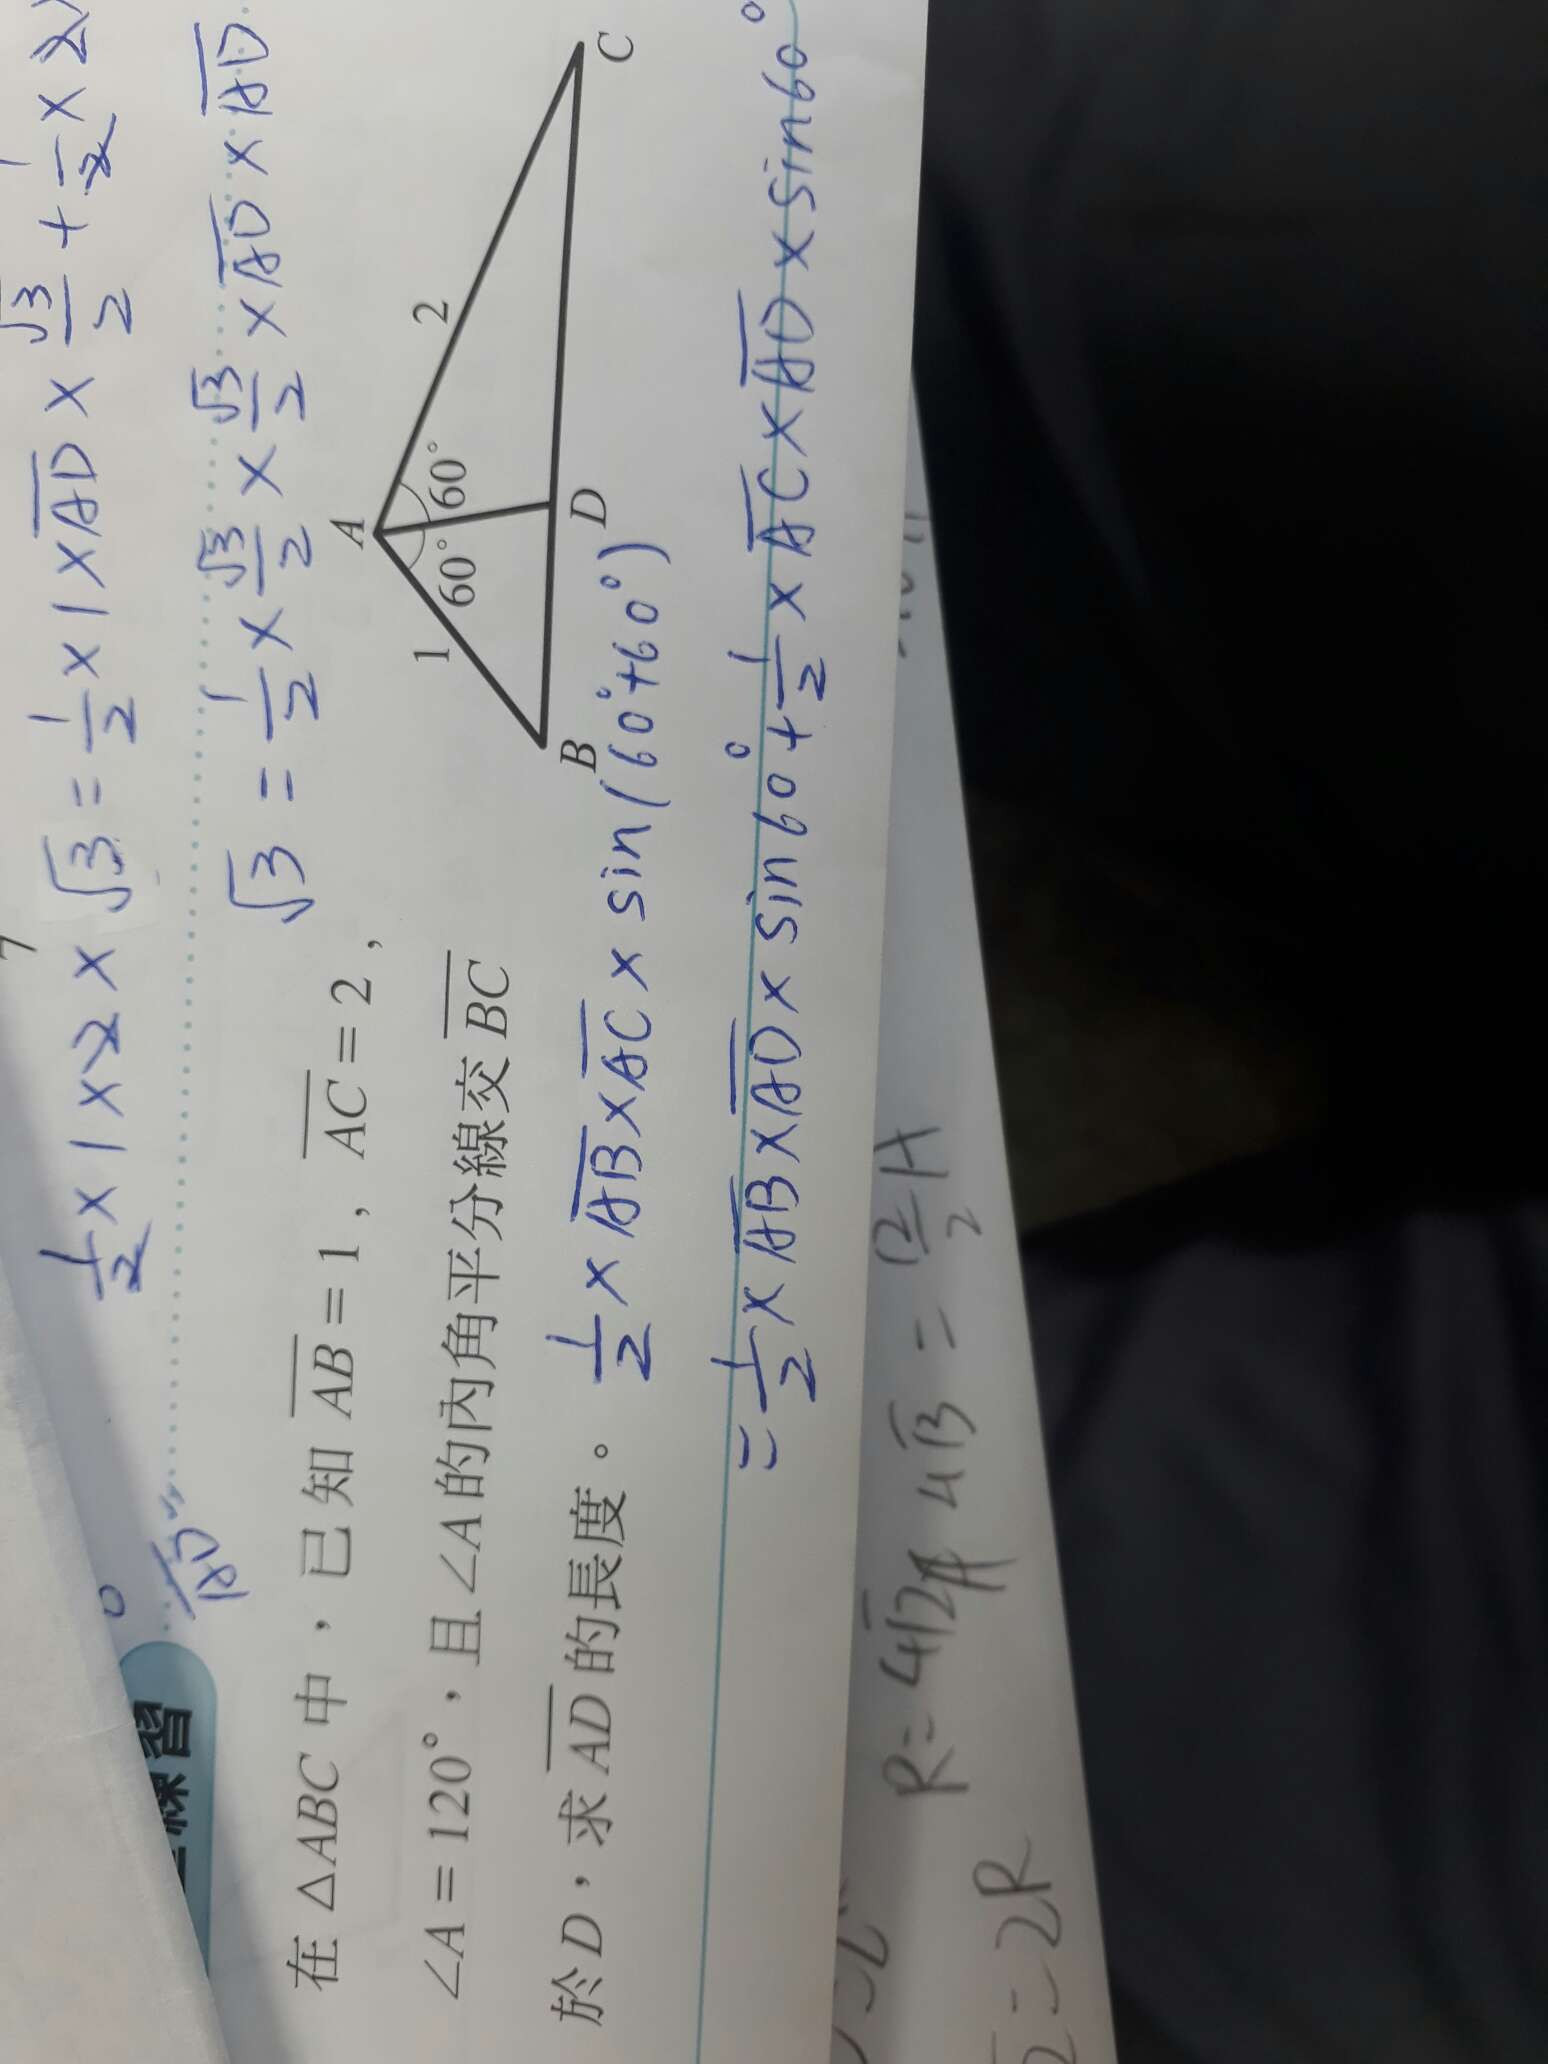 1/2 × 1 × 2 × √3 = 1/2 × 1 × AD × √3/2 + 1/2 × 2
√3 = 1/2 × √3/2 × √3/2 × AD × AD
AD
練習
在 △ABC 中，已知 AB = 1，AC = 2，
∠A = 120°，且 ∠A 的內角平分線交 BC
於 D，求 AD 的長度。
A
1
2
60°
60°
B
D
C
1/2 × AB × AC × sin(60°+60°)
= 1/2 × AB × AD × sin60° + 1/2 × AC × AD × sin60°
R = 4√2
4√3 =
= 2R